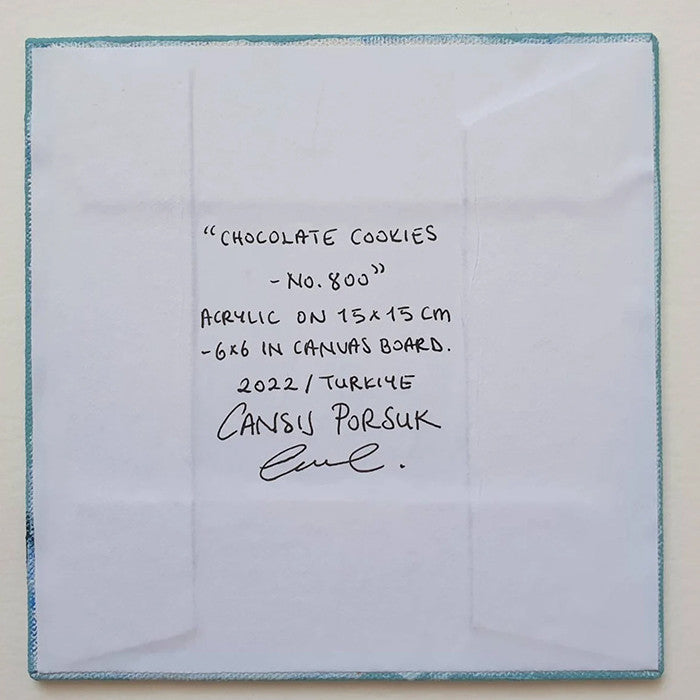 “CHOCOLATE COOKIES
- No. 800”
ACRYLIC ON 15x15 cm
- 6x6 IN CANVAS BOARD.
2022 / TURKIYE
CANSU PORSUK